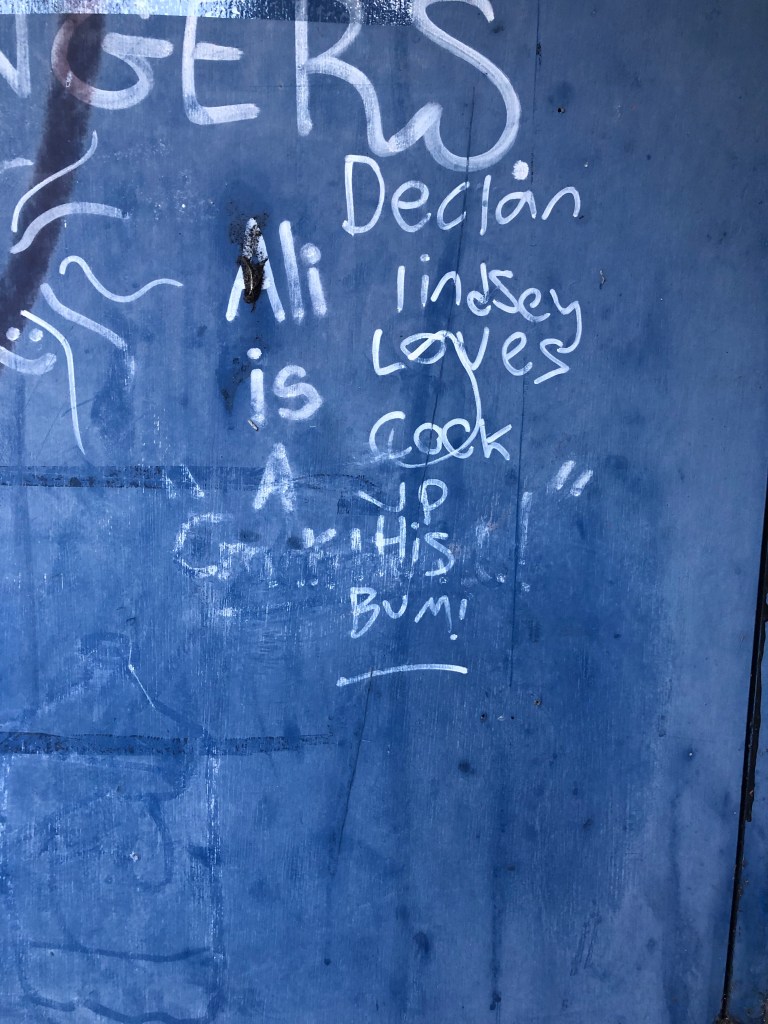 NGERS
Declan
lindsey
Loves
Cock
up
His
Bum!
Ali
is
A